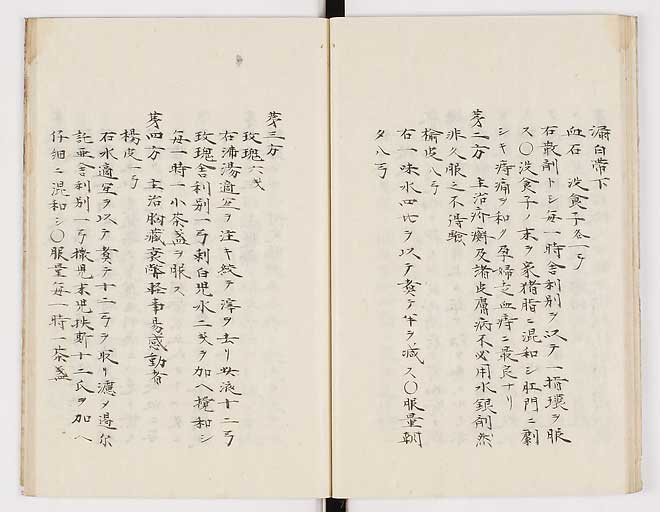 漏白帯下
血石 没食子各一弓
右散剤トシ毎一時舎利別ヲ以テ一指環ヲ服
ス〇没食子ノ末ヲ家猪脂ニ混和シ肛門ニ劑
シキ痔痛ヲ和ク孕婦之血痔ニ最良ナリ
第二方 主治疥癬及諸皮膚病不必用水銀剤然
非久服之不得験
楡皮八弓
右一味水四比ヲ以テ煑テ半ヲ減ス〇服量朝
夕八弓
第三方
玫瑰六戔
右沸湯適宜ヲ注キ絞テ滓ヲ去リ其液十二弓
玫瑰舎利別一弓剌白児水二戔ヲ加ヘ攪和シ
毎一時一小茶盞ヲ服ス
第四方 主治胸蔵衰弊軽事易感動者
楊皮一弓
右水適宜ヲ以テ煑テ十二弓ヲ取リ濾メ過尓
託亜舎利別一弓撒児末児挨斯十二氐ヲ加ヘ
仔細ニ混和シ〇服量毎一時一茶盞